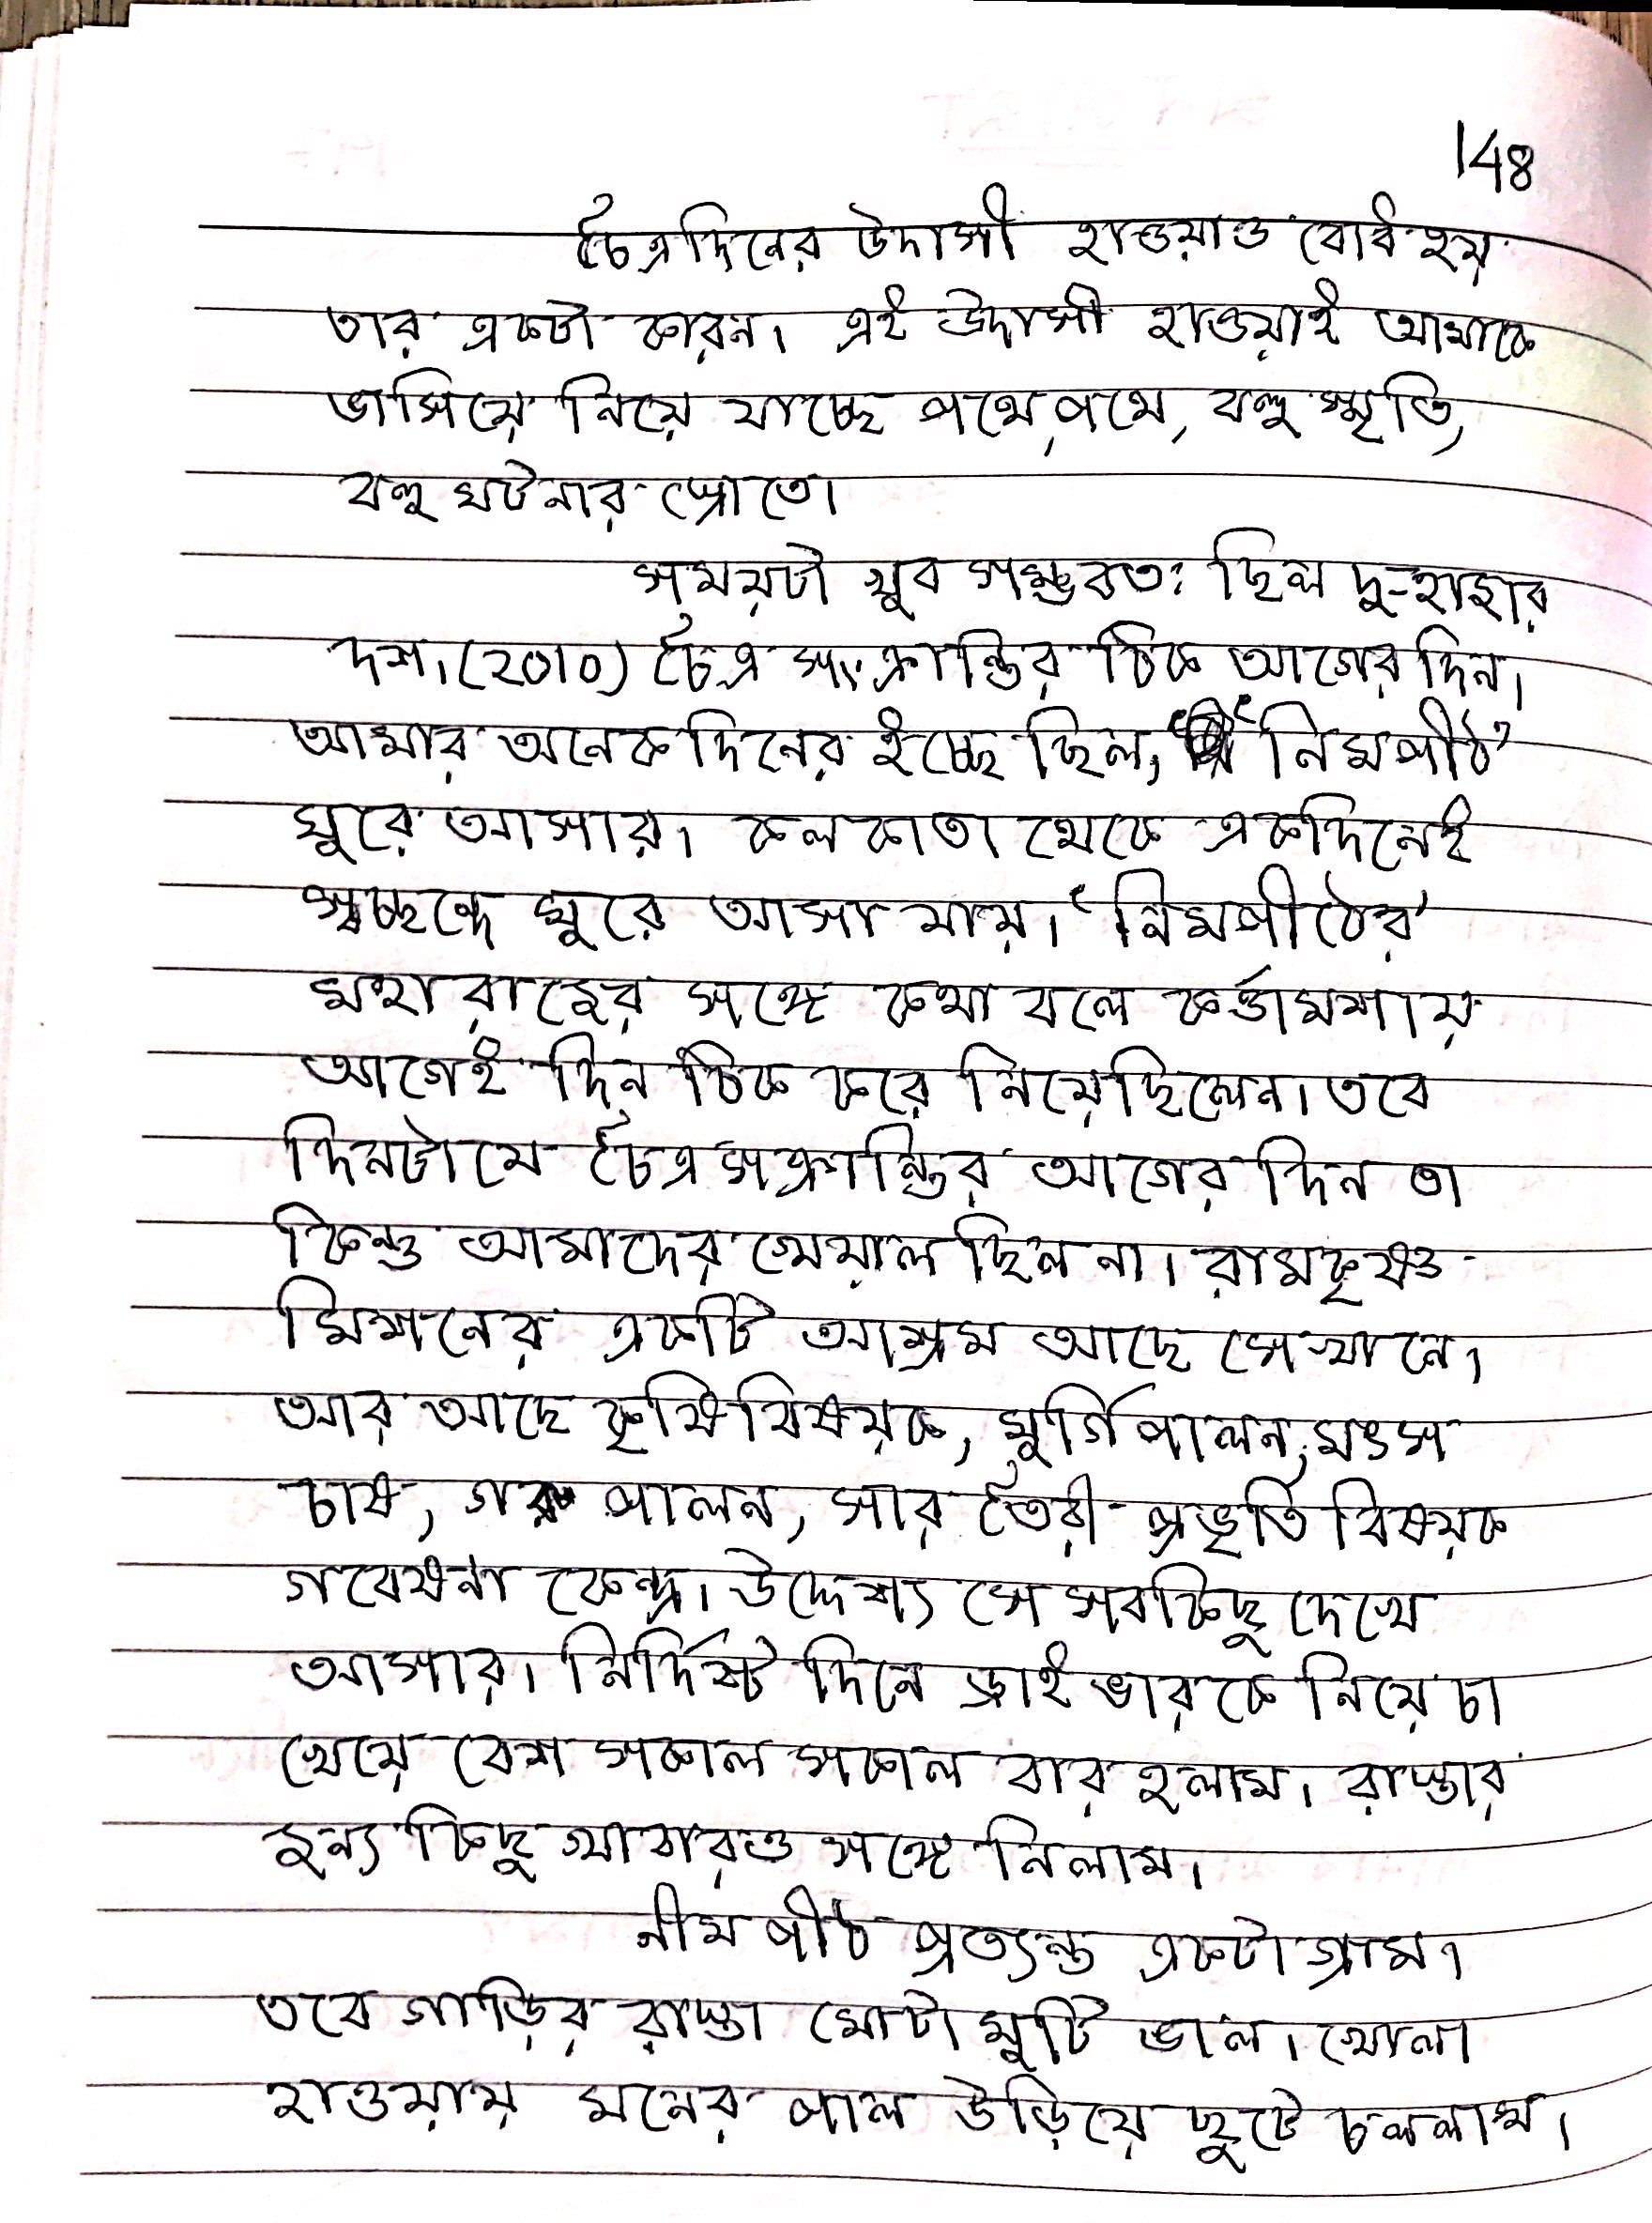 148
চৈত্রদিনের উদাসী হাওয়াও বোধ হয়
তার একটা কারন। এই উদাসী হাওয়াই আমাকে
ভাসিয়ে নিয়ে যাচ্ছে পথে, পথে, বহু স্মৃতি,
বহু ঘটনার স্রোতে।
সময়টা খুব সম্ভবতঃ ছিল দু-হাজার
দশ। (২০১০) চৈত্র সংক্রান্তির ঠিক আগের দিন।
আমার অনেক দিনের ইচ্ছে ছিল, 'নিমপীঠ'
ঘুরে আসার। কলকাতা থেকে একদিনেই
স্বচ্ছন্দে ঘুরে আসা যায়। 'নিমপীঠের'
মহারাজের সঙ্গে কথা বলে কর্ত্তামশায়
আগেই দিন ঠিক করে নিয়েছিলেন। তবে
দিনটা যে চৈত্র সক্রান্তির আগের দিন তা
কিন্তু আমাদের খেয়াল ছিল না। রামকৃষ্ণ
মিশনের একটি আশ্রম আছে সেখানে।
আর আছে কৃষি বিষয়ক, মুর্গি পালন, মৎস
চাষ, গরু পালন, সার তৈরী প্রভৃতি বিষয়ক
গবেষনা কেন্দ্র। উদ্দেশ্য সে সবকিছু দেখে
আসার। নির্দিষ্ট দিনে ড্রাইভারকে নিয়ে চা
খেয়ে বেশ সকাল সকাল বার হলাম। রাস্তার
জন্য কিছু খাবারও সঙ্গে নিলাম।
নীমপীঠ প্রত্যন্ত একটা গ্রাম।
তবে গাড়ির রাস্তা মোটামুটি ভাল। খোলা
হাওয়ায় মনের পাল উড়িয়ে ছুটে চললাম।